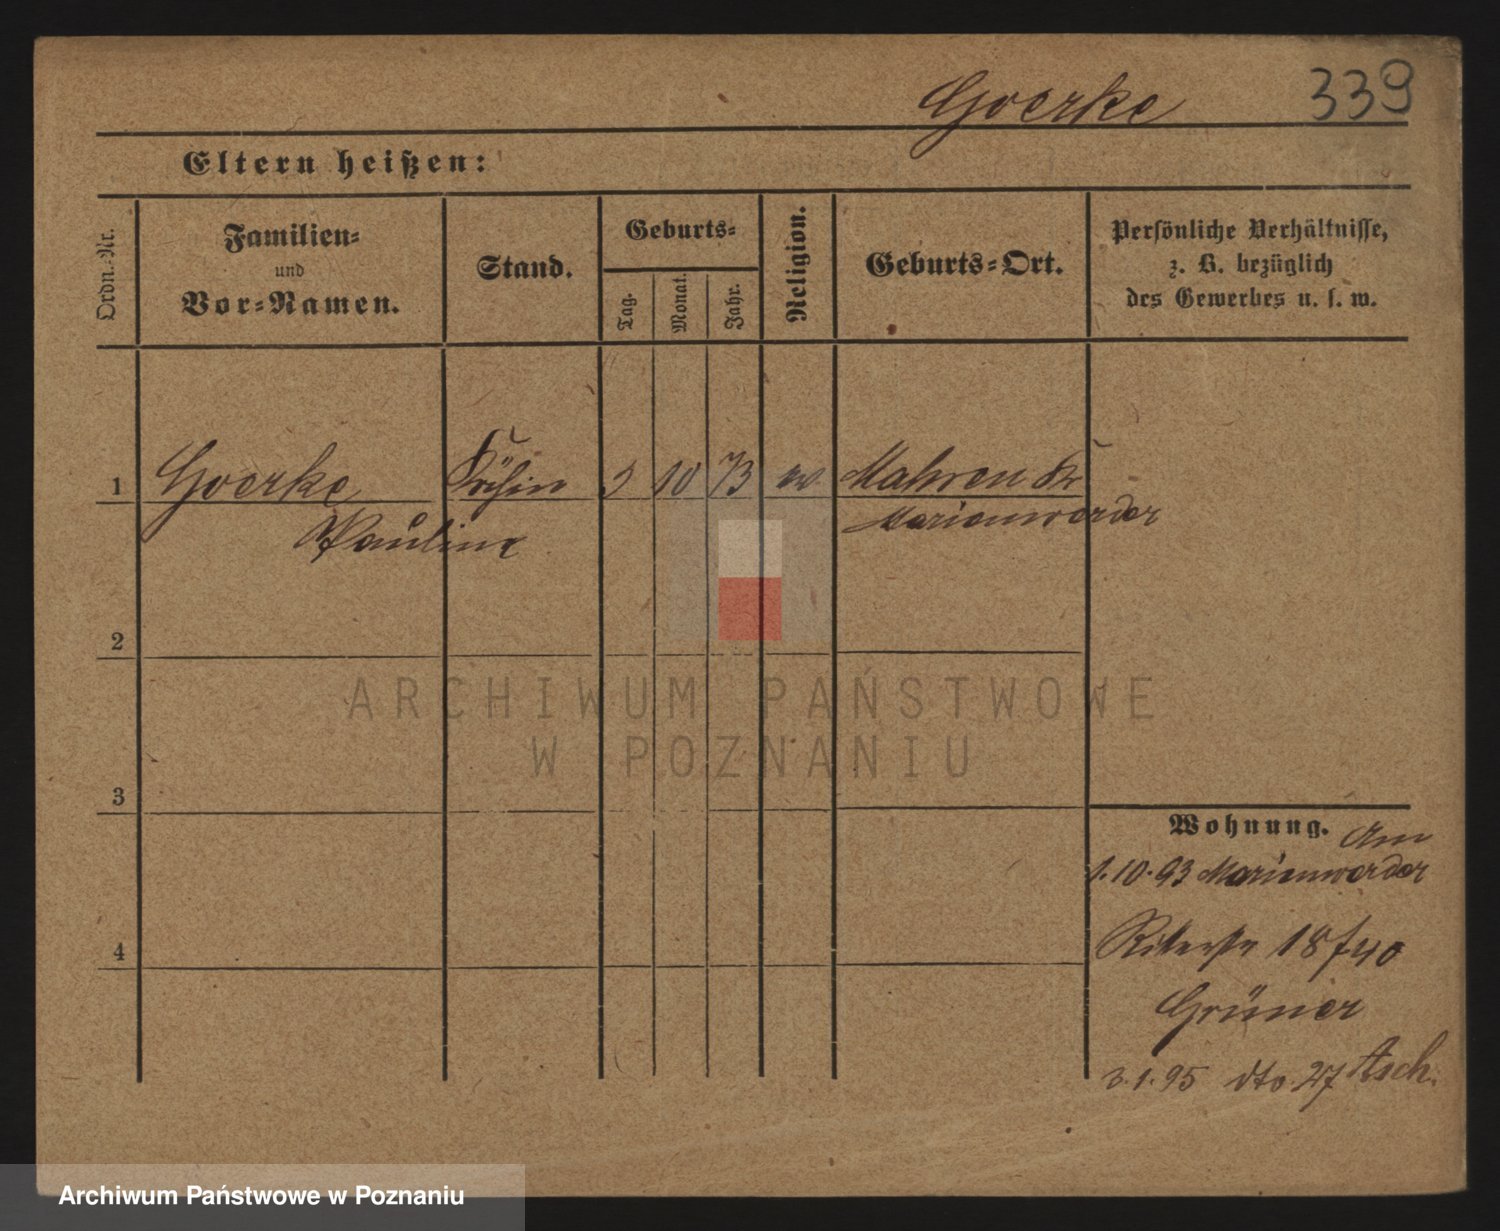 Goerke 339
Eltern heißen:
Ordn.-Nr.
Familien-
und
Vor-Namen.
Stand.
Geburts-
Tag.
Monat.
Jahr.
Religion.
Geburts-Ort.
Persönliche Verhältnisse,
z. B. bezüglich
des Gewerbes u. s. w.
1 Goerke Köchin 10 73 ev Mahren Kr
Pauline Marienwerder
2
ARCHIWUM PAŃSTWOWE
W POZNANIU
3
Wohnung. Am
1.10.93 Marienwerder
18 f 40
Grüner
3.1.95 dto 27 Asch.
4
Archiwum Państwowe w Poznaniu